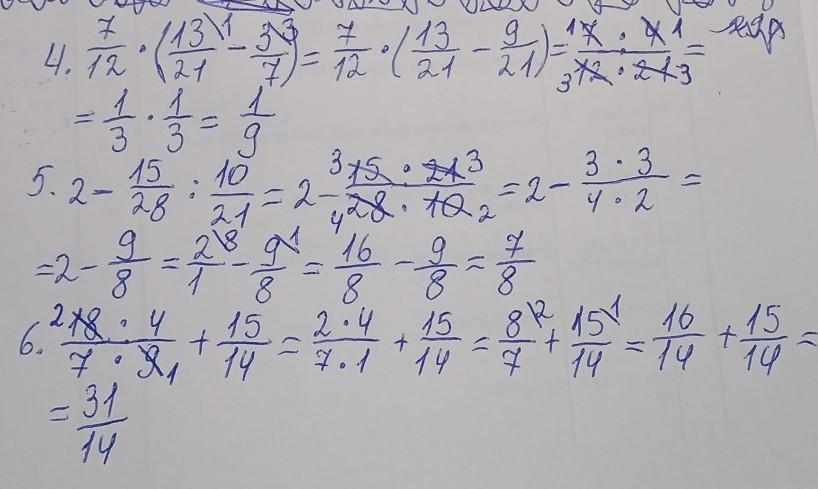 4. 7/12 · (13\1/21 - 3\3/7) = 7/12 · (13/21 - 9/21) = 1 7 · 4 1 / 3 12 · 21 3 =
= 1/3 · 1/3 = 1/9
5. 2 - 15/28 : 10/21 = 2 - 3 15 · 21 3 / 4 28 · 10 2 = 2 - 3 · 3 / 4 · 2 =
= 2 - 9/8 = 2\8/1 - 9\1/8 = 16/8 - 9/8 = 7/8
6. 2 18 · 4 / 7 · 9 1 + 15/14 = 2 · 4 / 7 · 1 + 15/14 = 8\2/7 + 15\1/14 = 16/14 + 15/14 =
= 31/14